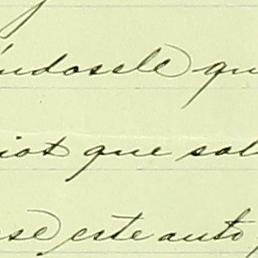 índosele qu
iot que sol
se este auto